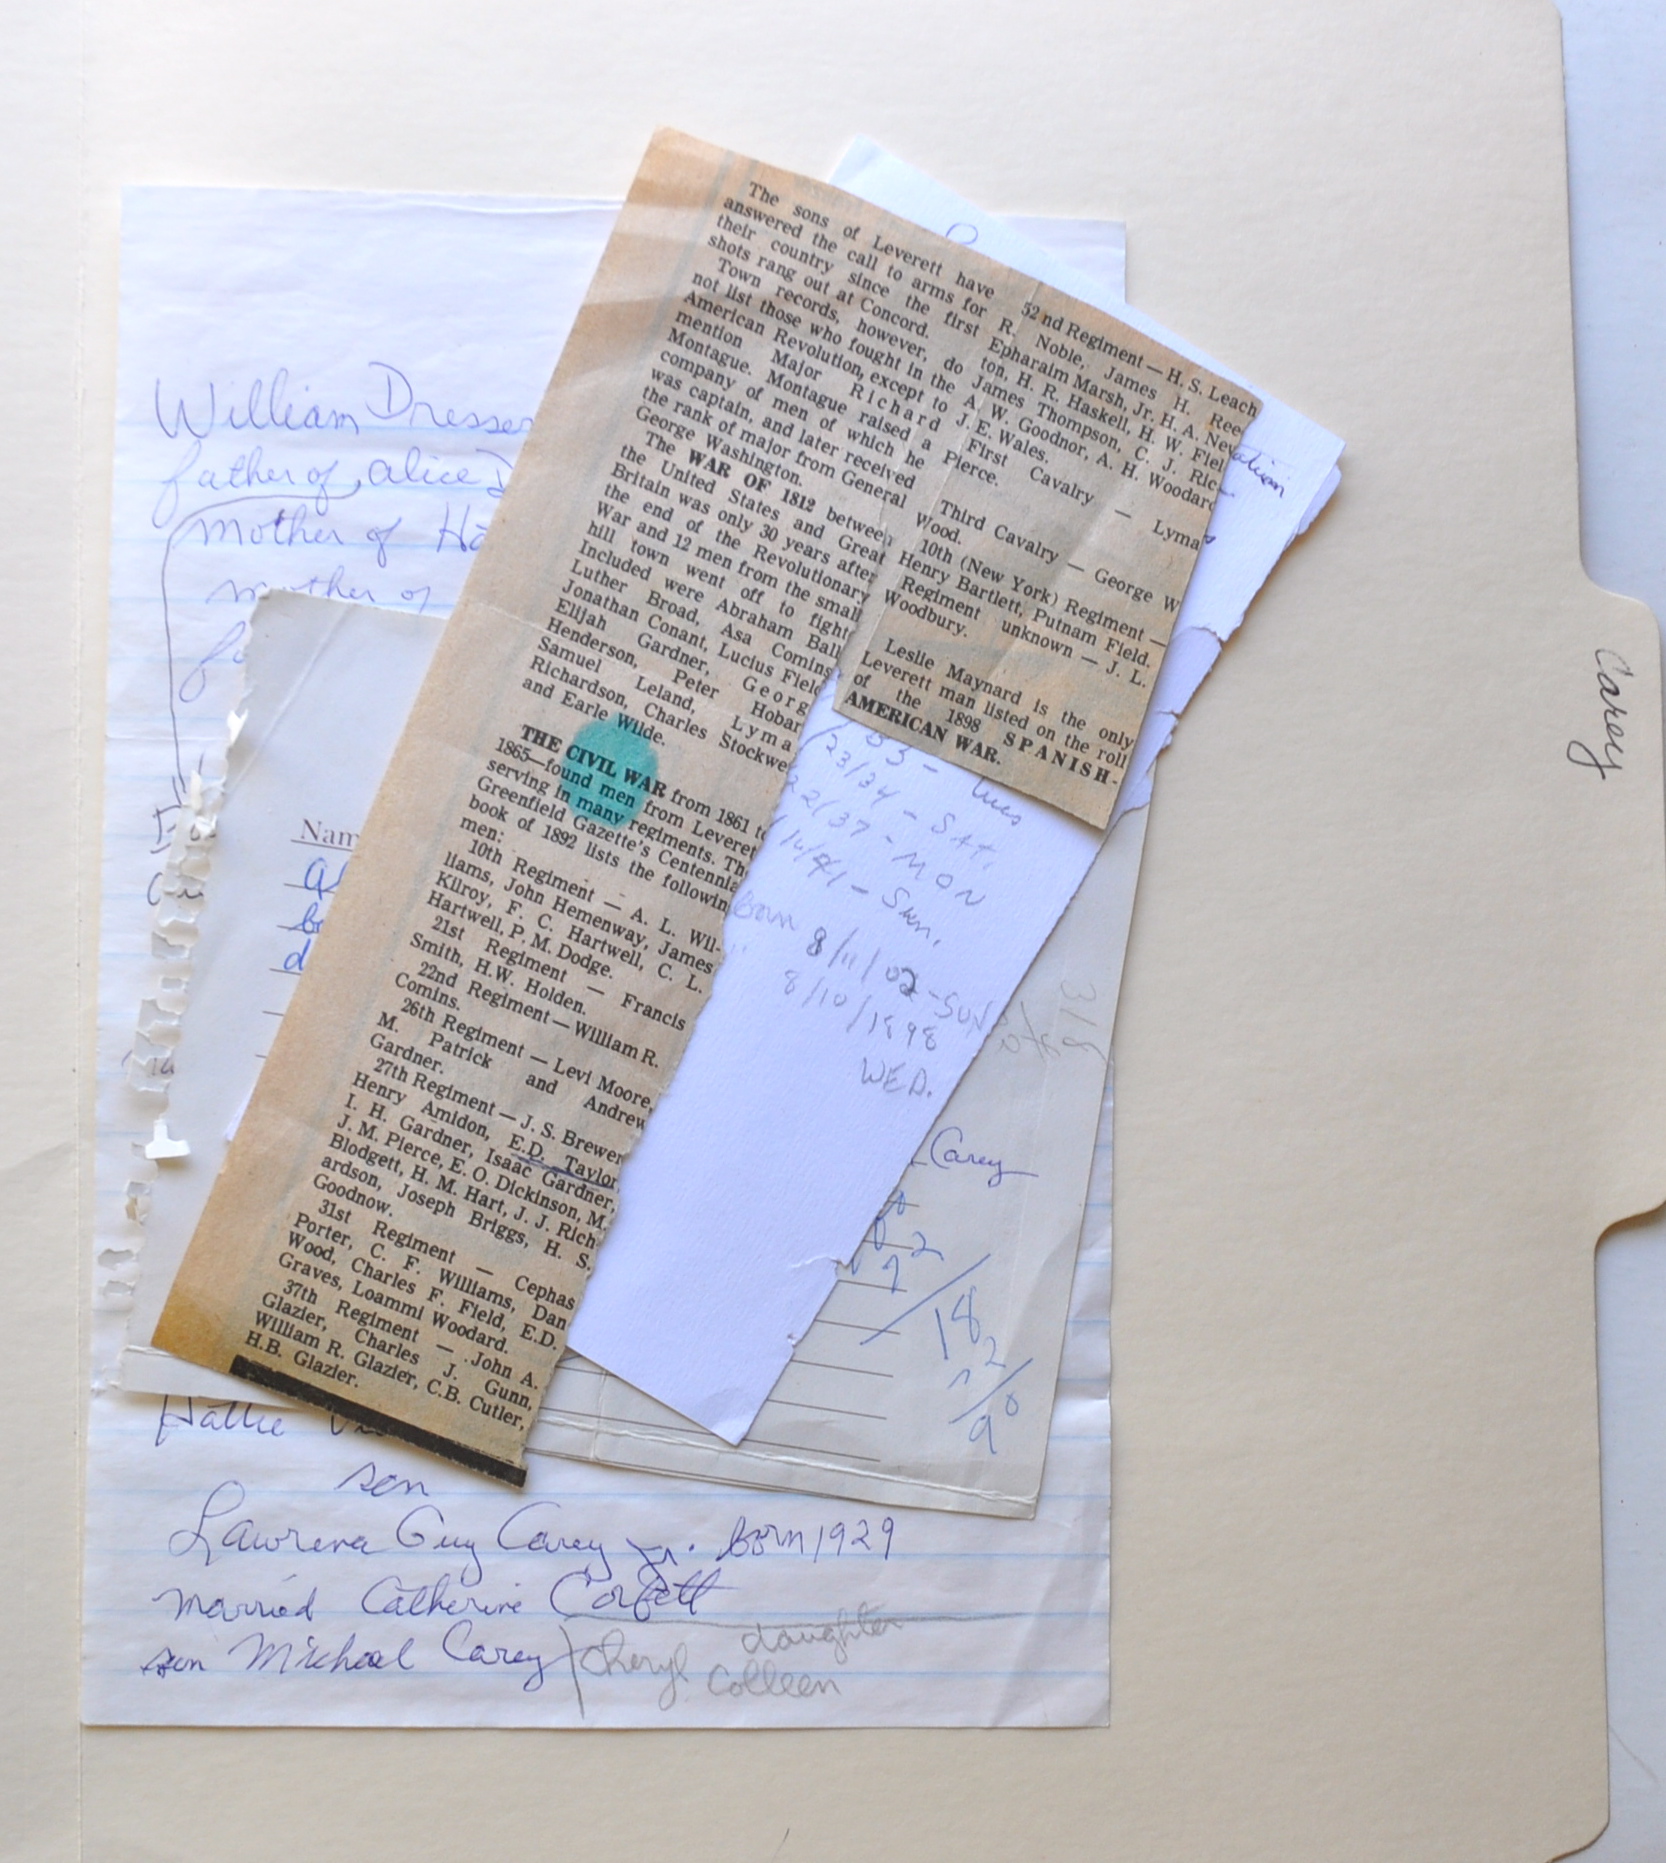 William Dresser
father of Alice
mother of Ha
mother of
Nam
The sons of Leverett have
answered the call to arms for
their country since the first
shots rang out at Concord.
Town records, however, do
not list those who fought in the
American Revolution, except to
mention Major Richard
Montague. Montague raised a
company of men of which he
was captain, and later received
the rank of major from General
George Washington.
The WAR OF 1812 between
the United States and Great
Britain was only 30 years after
the end of the Revolutionary
War and 12 men from the small
hill town went off to fight
Included were Abraham Ball
Luther Broad, Asa Comins
Jonathan Conant, Lucius Field
Elijah Gardner, Georg
Henderson, Peter Hobar
Samuel Leland, Lyma
Richardson, Charles Stockwe
and Earle Wilde.
THE CIVIL WAR from 1861 to
1865—found men from Leveret
serving in many regiments. Th
Greenfield Gazette's Centennia
book of 1892 lists the followin
men:
10th Regiment — A. L. Wil-
liams, John Hemenway, James
Kilroy, F. C. Hartwell, C. L.
Hartwell, P. M. Dodge.
21st Regiment — Francis
Smith, H.W. Holden.
22nd Regiment — William R.
Comins.
26th Regiment — Levi Moore,
M. Patrick and Andrew
Gardner.
27th Regiment — J. S. Brewer
Henry Amidon, E.D. Taylor,
I. H. Gardner, Isaac Gardner,
J. M. Pierce, E. O. Dickinson, M.
Blodgett, H. M. Hart, J. J. Rich
ardson, Joseph Briggs, H. S.
Goodnow.
31st Regiment — Cephas
Porter, C. F. Williams, Dan
Wood, Charles F. Field, E.D.
Graves, Loammi Woodard.
37th Regiment — John A.
Glazier, Charles J. Gunn,
William R. Glazier, C.B. Cutler,
H.B. Glazier.
52nd Regiment — H. S. Leach
R. Noble, James H. Ree
Epharaim Marsh, Jr. H. A. New
ton, H. R. Haskell, H. W. Fiel
James Thompson, C. J. Ric
A. W. Goodnor, A. H. Woodard
J. E. Wales.
First Cavalry — Lyma
Pierce.
Third Cavalry — George W
Wood.
10th (New York) Regiment —
Henry Bartlett, Putnam Field.
Regiment unknown — J. L.
Woodbury.
Leslie Maynard is the only
Leverett man listed on the roll
of the 1898 SPANISH-
AMERICAN WAR.
23/34 - SAT.
22/37 - MON
Sun.
Born 8/11/02 - SUN
" 8/10/1898
WED.
318
Carey
18
Hattie
son
Lawrence Guy Carey Jr. born 1929
married Catherine Corbett
son Michael Carey
daughter
Cheryl
Colleen
Carey